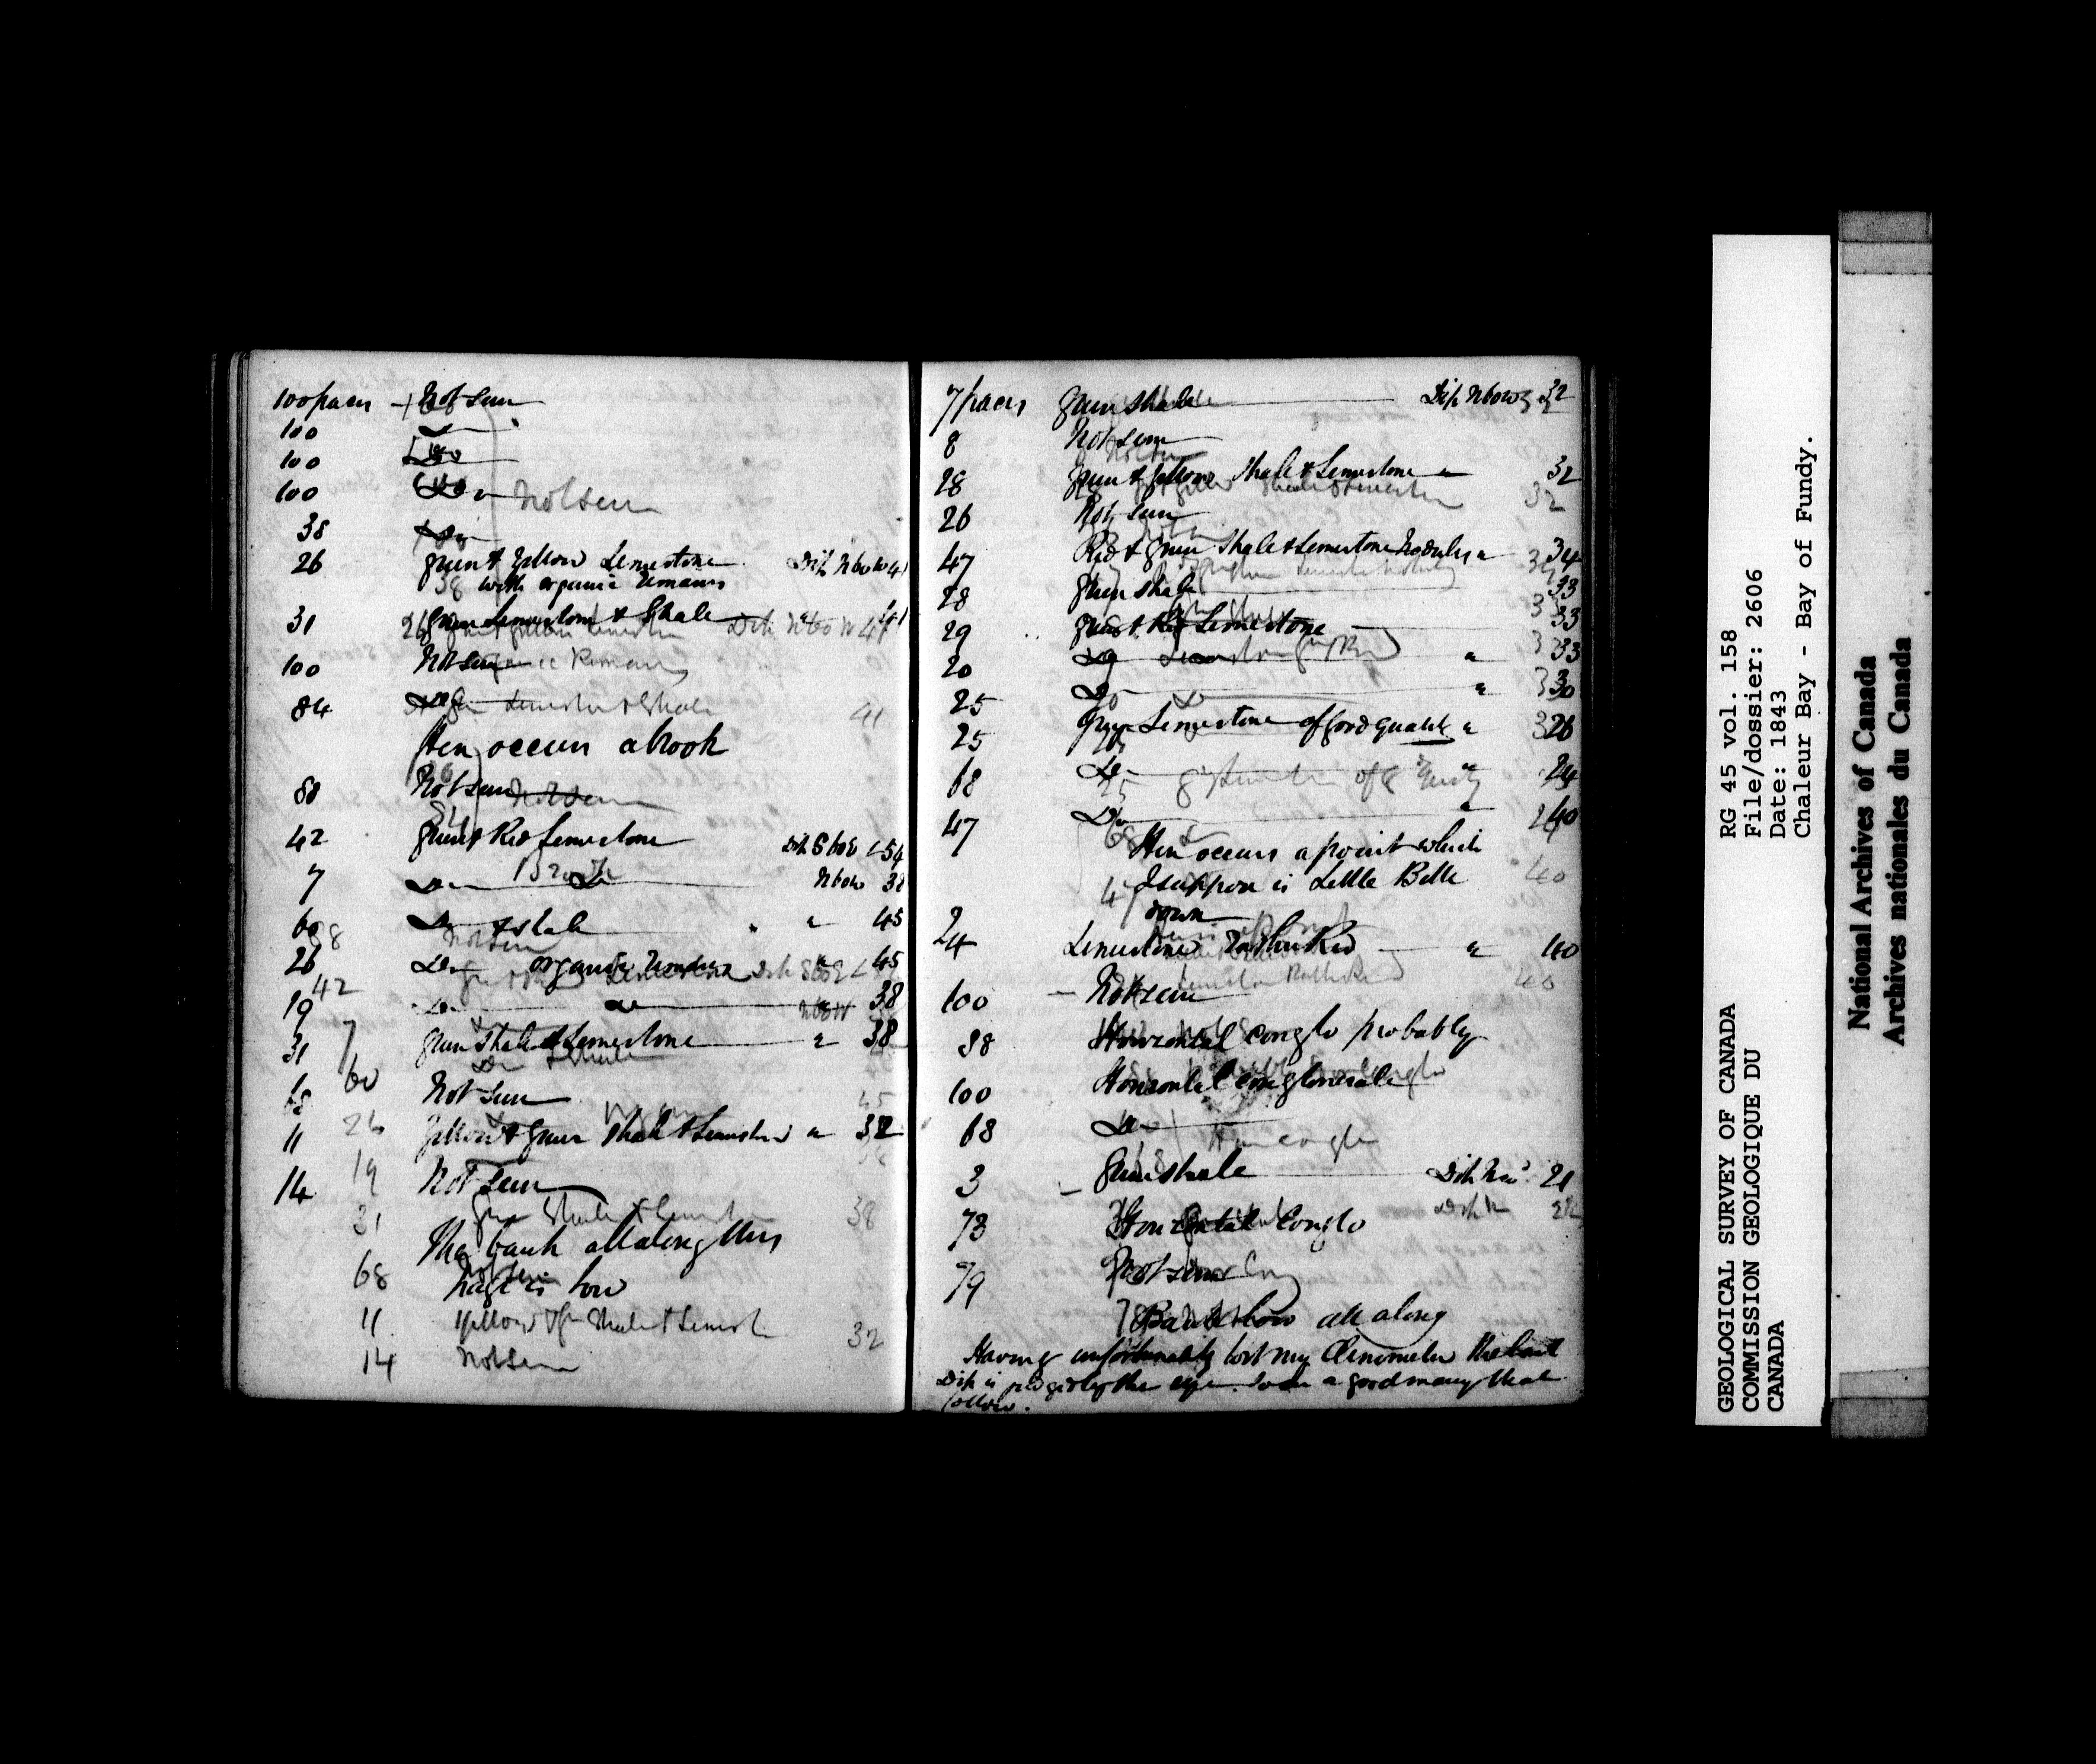 100 paces Not seen
100 Do
100 Do
100 Do Not seen
38 Do
26 Green & Yellow Limestone Dip N60W 41
38 with organic remains
31 Green Limestone & Shale " 41
100 Not seen
84 Do
41
Here occurs a brook
88 Not seen
42 Green & Red Limestone Dip S60E <54
Brook
7 Do Do N60W 38
60 Do & shale " 45
88 Not seen
26 Do organic remains " 45
42
19 Do Do 38
7
31 Green Shale & Limestone " 38
60 Do & Shale
68 Not seen
26
11 Yellow & Green Shale & Limestone " 32
19
14 Not seen
31 Green Shale & Limestone 38
The bank all along this
68 Not seen
page is low
11 Yellow & Green Shale & Limestone 32
14 Not seen
7 paces Green shale Dip N60W 32
8 Not seen
28 Green & Yellow Shale & Limestone " 32
32
26 Not seen
47 Red & Green Shale & Limestone Nodules " 34
28 Green shale 33
29 Green & Red Limestone 33
20 Do " 33
25 Do " 30
25 Gray Limestone of good quality " 26
68 Do " 24
47 Do " 40
Here occurs a point which
I suppose is Little Belle
40
47
down
24 Limestone Rather Red " 40
Limestone Rather Red 40
100 Not seen
88 Horizontal Conglo probably
100 Horizontal conglomerate
68 Do
Hor conglo
3 Green shale Dip NW 21
73 Horizontal Conglo
79 Not seen
Bank low all along
Having unfortunately lost my Clinometer the last
Dip is judged by the eye. So are a good many that
follow.
GEOLOGICAL SURVEY OF CANADA RG 45 vol. 158
COMMISSION GEOLOGIQUE DU File/dossier: 2606
CANADA Date: 1843
Chaleur Bay - Bay of Fundy.
National Archives of Canada
Archives nationales du Canada